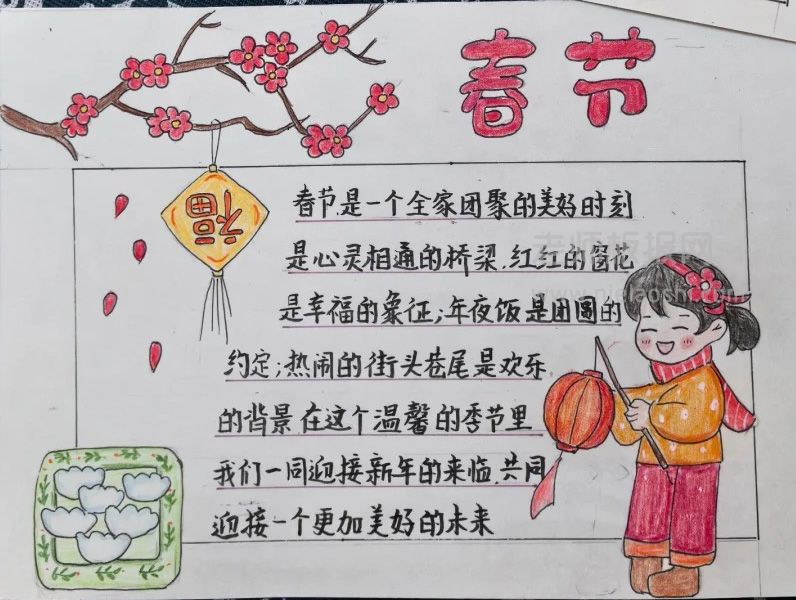 春节
福
春节是一个全家团聚的美好时刻
是心灵相通的桥梁.红红的窗花
是幸福的象征;年夜饭是团圆的
约定;热闹的街头巷尾是欢乐
的背景.在这个温馨的季节里
我们一同迎接新年的来临.共同
迎接一个更加美好的未来